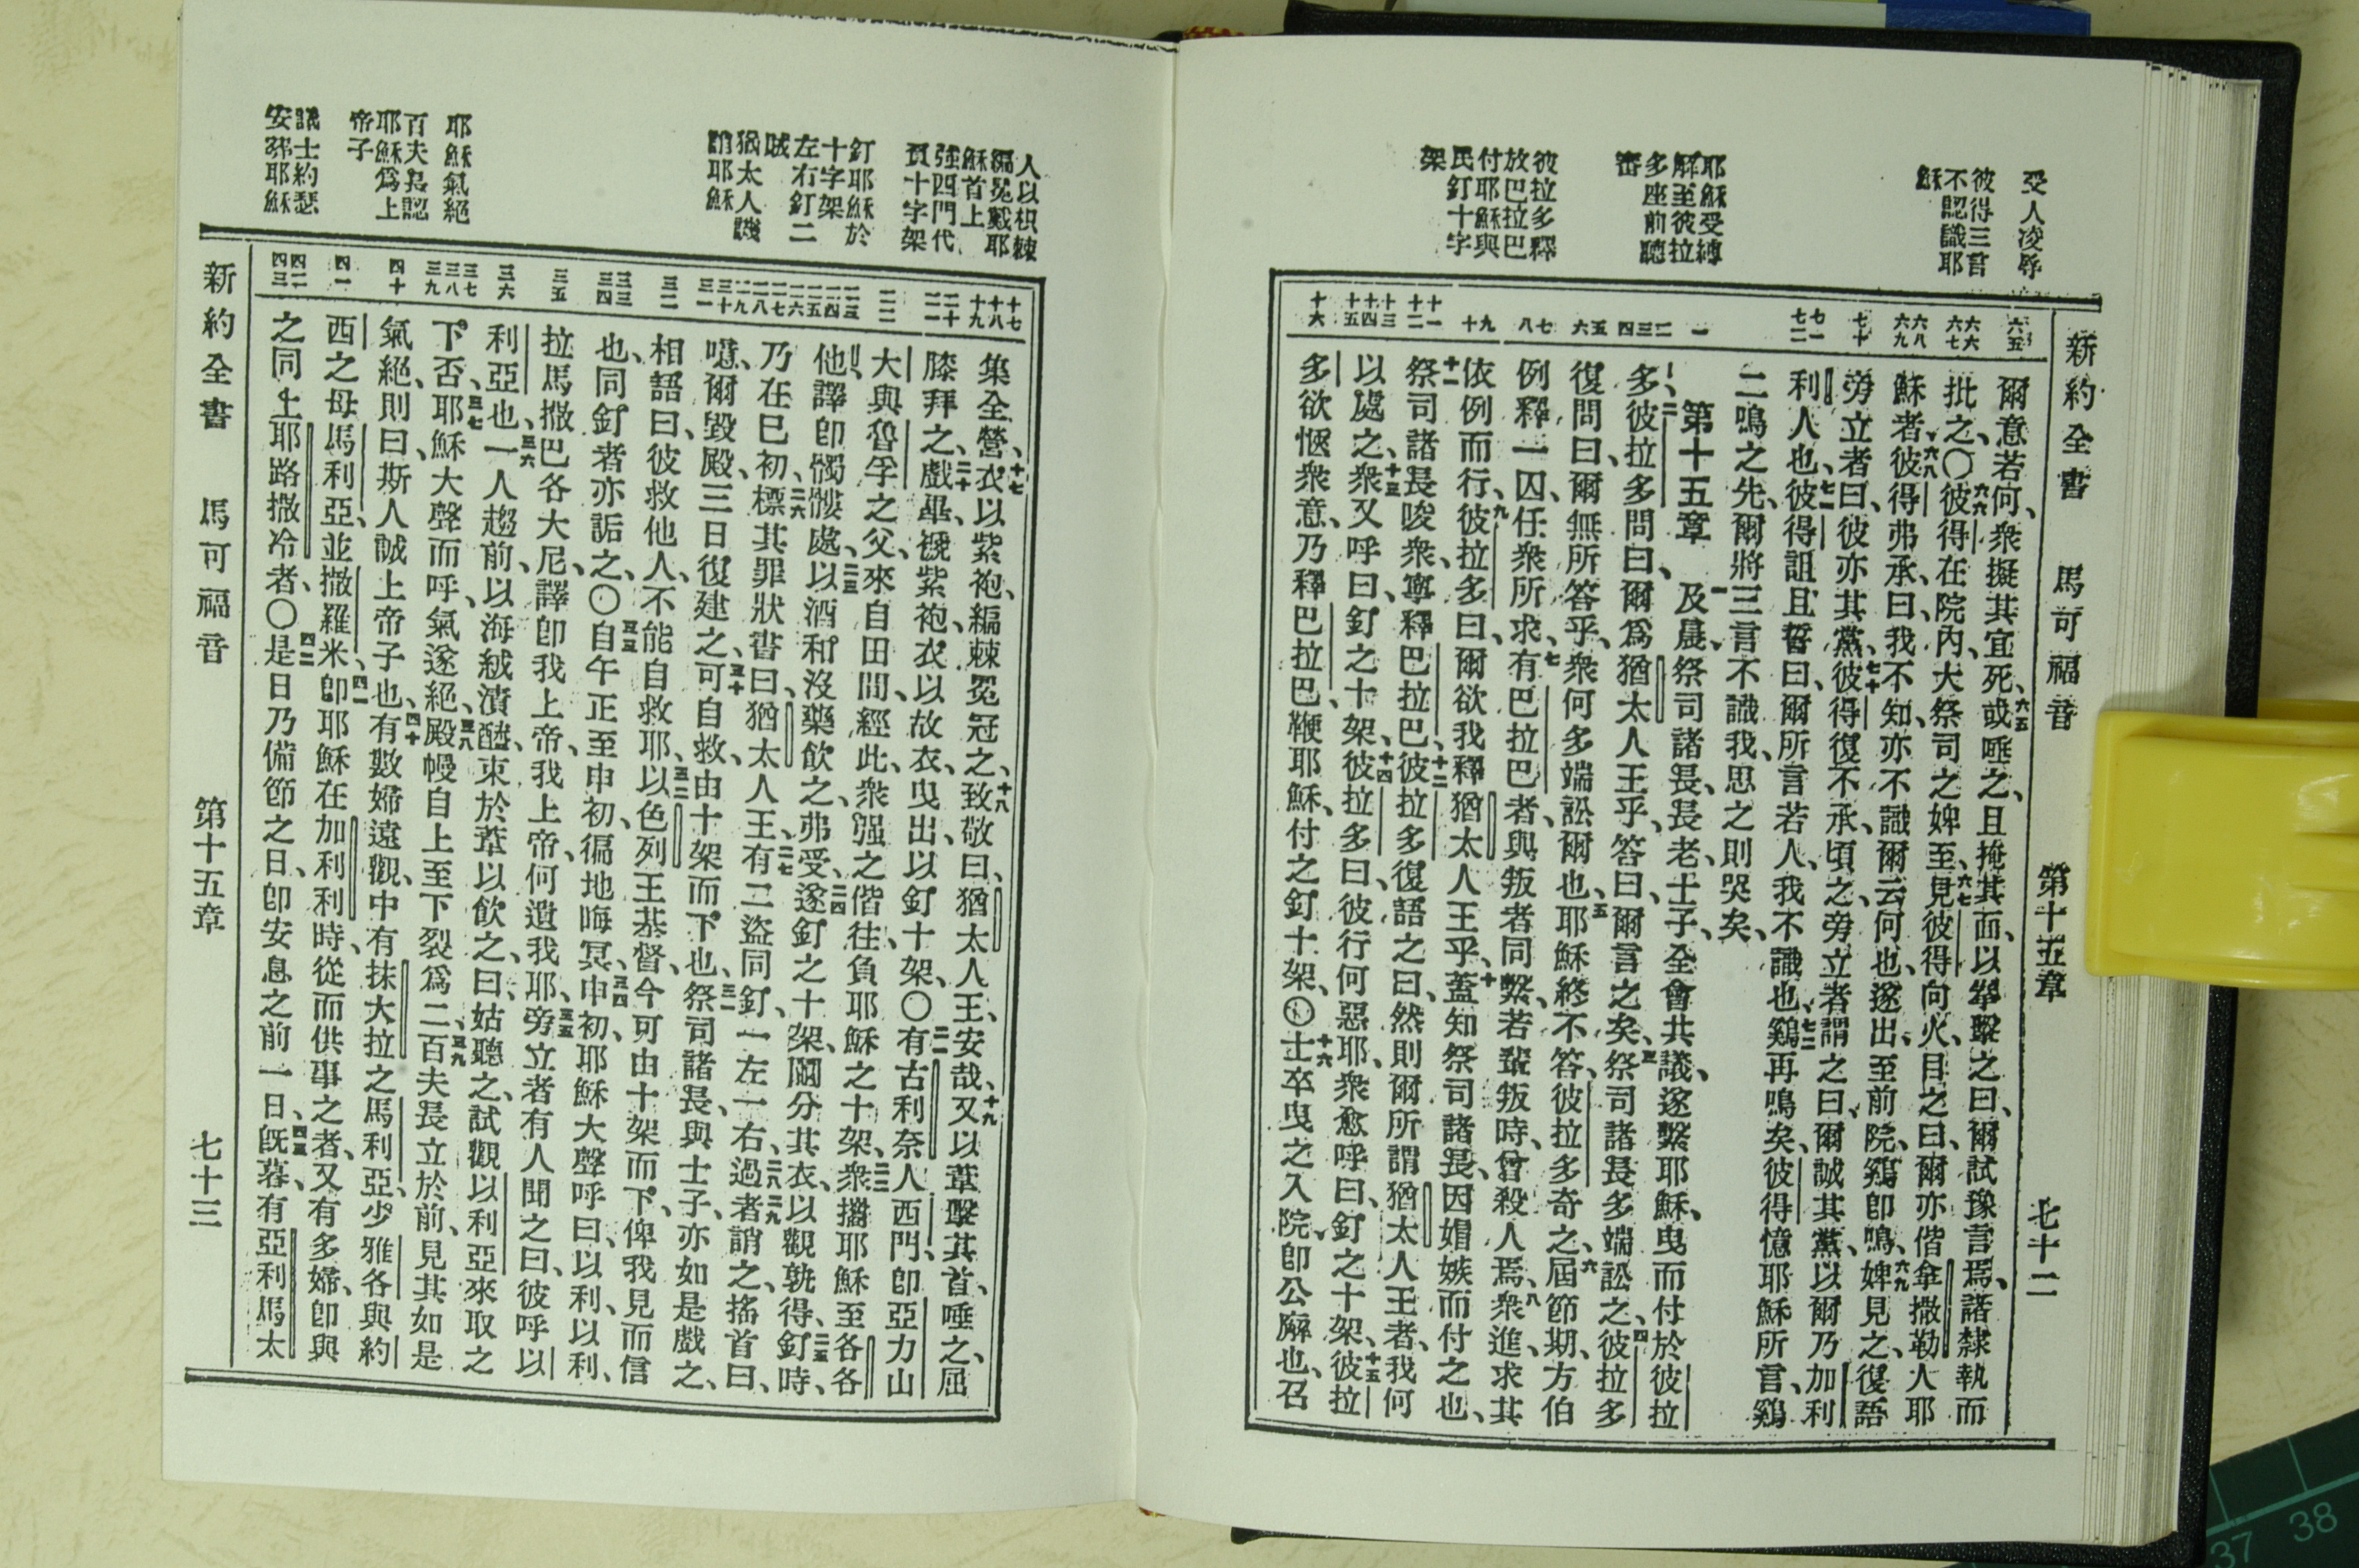 新約全書 馬可福音 第十五章 七十二
受人凌辱
彼得三言
不認識耶
穌
耶穌受縛
解至彼拉
多座前聽
審
彼拉多釋
放巴拉巴
付耶穌與
民釘十字
架
六五
六六
六七
六八
六九
七十
七一
七二
一
二
三
四
五
六
七
八
九
十
十一
十二
十三
十四
十五
十六
爾意若何、衆擬其宜死、六五或唾之、且掩其面、以拳擊之曰、爾試豫言焉、諸隸執而
批之、〇六六彼得在院內、大祭司之婢至、六七見彼得向火、目之曰、爾亦偕拿撒勒人耶
穌者、六八彼得弗承曰、我不知、亦不識爾云何也、遂出至前院、鷄卽鳴、六九婢見之、復語
旁立者曰、彼亦其黨、七十彼得復不承、頃之、旁立者謂之曰、爾誠其黨、以爾乃加利
利人也、七一彼得詛且誓曰、爾所言若人、我不識也、七二鷄再鳴矣、彼得憶耶穌所言、鷄
二鳴之先、爾將三言不識我、思之則哭矣、
第十五章 一及晨、祭司諸長、長老、士子、全會共議、遂繫耶穌、曳而付於彼拉
多、二彼拉多問曰、爾爲猶太人王乎、答曰、爾言之矣、三祭司諸長多端訟之、四彼拉多
復問曰、爾無所答乎、衆何多端訟爾也、五耶穌終不答、彼拉多奇之、六屆節期、方伯
例釋一囚、任衆所求、七有巴拉巴者、與叛者同繫、若輩叛時、曾殺人焉、八衆進、求其
依例而行、九彼拉多曰、爾欲我釋猶太人王乎、十蓋知祭司諸長、因媢嫉而付之也、
十一祭司諸長唆衆、寧釋巴拉巴、十二彼拉多復語之曰、然則爾所謂猶太人王者、我何
以處之、十三衆又呼曰、釘之十架、十四彼拉多曰、彼行何惡耶、衆愈呼曰、釘之十架、十五彼拉
多欲愜衆意、乃釋巴拉巴、鞭耶穌、付之釘十架、〇十六士卒曳之入院、卽公廨也、召
人以枳棘
編冕戴耶
穌首上
強四門代
負十字架
釘耶穌於
十字架
左右釘二
賊
猶太人譏
誚耶穌
耶穌氣絕
百夫長認
耶穌爲上
帝子
議士約瑟
安葬耶穌
十七
十八
十九
二十
二一
二二
二三
二四
二五
二六
二七
二八
二九
三十
三一
三二
三三
三四
三五
三六
三七
三八
三九
四十
四一
四二
四三
集全營、十七衣以紫袍、編棘冕冠之、十八致敬曰、猶太人王、安哉、十九又以葦擊其首、唾之、屈
膝拜之、二十戲畢、褫紫袍、衣以故衣、曳出、以釘十架、〇二一有古利奈人西門、卽亞力山
大與魯孚之父、來自田間、經此、衆强之偕往、負耶穌之十架、二二衆攜耶穌至各各
他、譯卽髑髏處、二三以酒和沒藥飲之、弗受、二四遂釘之十架、鬮分其衣、以觀孰得、二五釘時、
乃在巳初、二六標其罪狀書曰、猶太人王、二七有二盜同釘、一左一右、二八二九過者誚之、搖首曰、
噫、爾毀殿、三日復建之、三十可自救、由十架而下也、三一祭司諸長、與士子、亦如是戲之、
相語曰、彼救他人、不能自救耶、三二以色列王基督、今可由十架而下、俾我見而信
也、同釘者亦詬之、〇三三自午正至申初、徧地晦冥、三四申初、耶穌大聲呼曰、以利、以利、
拉馬撒巴各大尼、譯卽我上帝、我上帝、何遺我耶、三五旁立者有人聞之曰、彼呼以
利亞也、三六一人趨前、以海絨漬醯、束於葦以飲之、曰、姑聽之、試觀以利亞來取之
下否、三七耶穌大聲而呼、氣遂絕、三八殿幔自上至下裂爲二、三九百夫長立於前、見其如是
氣絕、則曰、斯人誠上帝子也、四十有數婦遠觀、中有抹大拉之馬利亞、少雅各與約
西之母馬利亞、並撒羅米、四一卽耶穌在加利利時、從而供事之者、又有多婦、卽與
之同上耶路撒冷者、〇四二是日乃備節之日、卽安息之前一日、四三旣暮、有亞利馬太
新約全書 馬可福音 第十五章 七十三
37 38